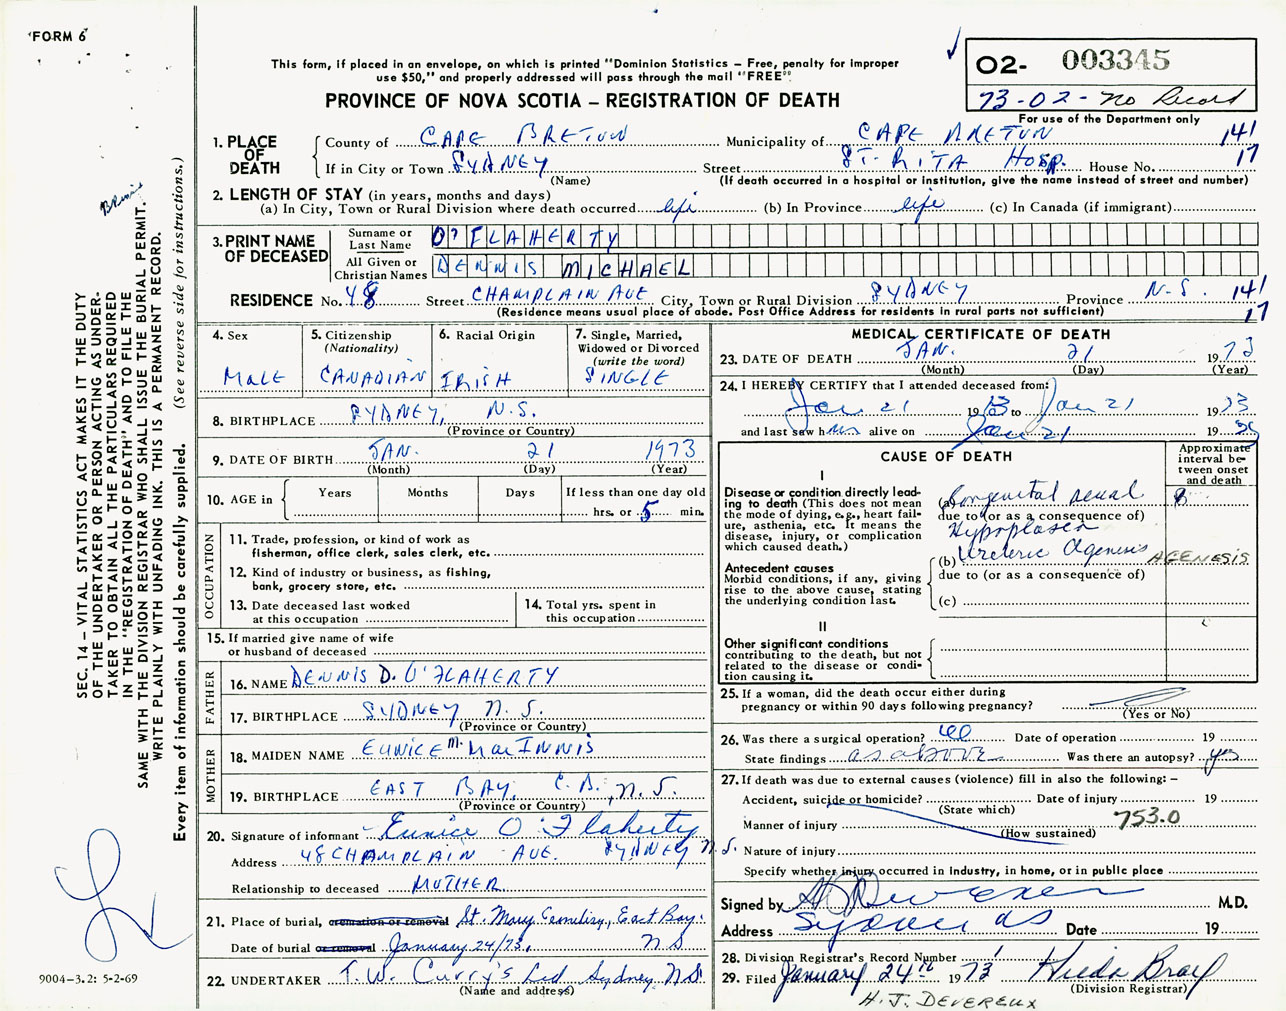 FORM 6
This form, if placed in an envelope, on which is printed "Dominion Statistics – Free, penalty for improper
use $50," and properly addressed will pass through the mail "FREE".
PROVINCE OF NOVA SCOTIA – REGISTRATION OF DEATH
02- 003345
73-02- No Record
For use of the Department only
1. PLACE OF DEATH
County of CAPE BRETON Municipality of CAPE BRETON 141
If in City or Town SYDNEY Street ST. RITA HOSP. House No. 17
(Name) (If death occurred in a hospital or institution, give the name instead of street and number)
2. LENGTH OF STAY (in years, months and days)
(a) In City, Town or Rural Division where death occurred life (b) In Province life (c) In Canada (if immigrant)
3. PRINT NAME OF DECEASED
Surname or Last Name O'FLAHERTY
All Given or Christian Names DENNIS MICHAEL
RESIDENCE No. 48 Street CHAMPLAIN AVE City, Town or Rural Division SYDNEY Province N.S. 141
(Residence means usual place of abode. Post Office Address for residents in rural parts not sufficient) 17
4. Sex MALE
5. Citizenship (Nationality) CANADIAN
6. Racial Origin IRISH
7. Single, Married, Widowed or Divorced (write the word) SINGLE
8. BIRTHPLACE SYDNEY, N.S.
(Province or Country)
9. DATE OF BIRTH JAN. 21 1973
(Month) (Day) (Year)
10. AGE in Years Months Days If less than one day old
hrs. or 5 min.
OCCUPATION
11. Trade, profession, or kind of work as
fisherman, office clerk, sales clerk, etc.
12. Kind of industry or business, as fishing,
bank, grocery store, etc.
13. Date deceased last worked
at this occupation
14. Total yrs. spent in
this occupation
15. If married give name of wife
or husband of deceased
FATHER
16. NAME DENNIS D. O'FLAHERTY
17. BIRTHPLACE SYDNEY N.S.
(Province or Country)
MOTHER
18. MAIDEN NAME EUNICE M. MacINNIS
19. BIRTHPLACE EAST BAY, C.B., N.S.
(Province or Country)
20. Signature of informant Eunice O'Flaherty
Address 48 CHAMPLAIN AVE. SYDNEY N.S.
Relationship to deceased MOTHER
21. Place of burial, cremation or removal St. Mary Cemetery, East Bay.
Date of burial or removal January 24/73, NS
22. UNDERTAKER T.W. Curry's Ltd, Sydney, NS
(Name and address)
MEDICAL CERTIFICATE OF DEATH
23. DATE OF DEATH JAN. 21 1973
(Month) (Day) (Year)
24. I HEREBY CERTIFY that I attended deceased from:
Jan 21 1973 to Jan 21 1973
and last saw him alive on Jan 21 19
CAUSE OF DEATH
Approximate interval between onset and death
I
Disease or condition directly lead-
ing to death (This does not mean
the mode of dying, e.g., heart fail-
ure, asthenia, etc. It means the
disease, injury, or complication
which caused death.)
(a) Congenital renal
due to (or as a consequence of)
Hypoplasia
Antecedent causes
Morbid conditions, if any, giving
rise to the above cause, stating
the underlying condition last.
(b) Ureteric Agenesis AGENESIS
due to (or as a consequence of)
(c)
II
Other significant conditions
contributing to the death, but not
related to the disease or condi-
tion causing it.
25. If a woman, did the death occur either during
pregnancy or within 90 days following pregnancy?
(Yes or No)
26. Was there a surgical operation? Date of operation 19
State findings as above Was there an autopsy? yes
27. If death was due to external causes (violence) fill in also the following: –
Accident, suicide or homicide? Date of injury 19
(State which)
Manner of injury 753.0
(How sustained)
Nature of injury
Specify whether injury occurred in industry, in home, or in public place
Signed by H J Devereux M.D.
Address Sydney NS Date 19
28. Division Registrar's Record Number
29. Filed January 24th 1973 Hilda Bray
(Division Registrar)
H. J. DEVEREUX
SEC. 14 – VITAL STATISTICS ACT MAKES IT THE DUTY
OF THE UNDERTAKER OR PERSON ACTING AS UNDER-
TAKER TO OBTAIN ALL THE PARTICULARS REQUIRED
IN THE "REGISTRATION OF DEATH" AND TO FILE THE
SAME WITH THE DIVISION REGISTRAR WHO SHALL ISSUE THE BURIAL PERMIT.
WRITE PLAINLY WITH UNFADING INK. THIS IS A PERMANENT RECORD.
Every item of information should be carefully supplied. (See reverse side for instructions.)
9004-3.2: 5-2-69